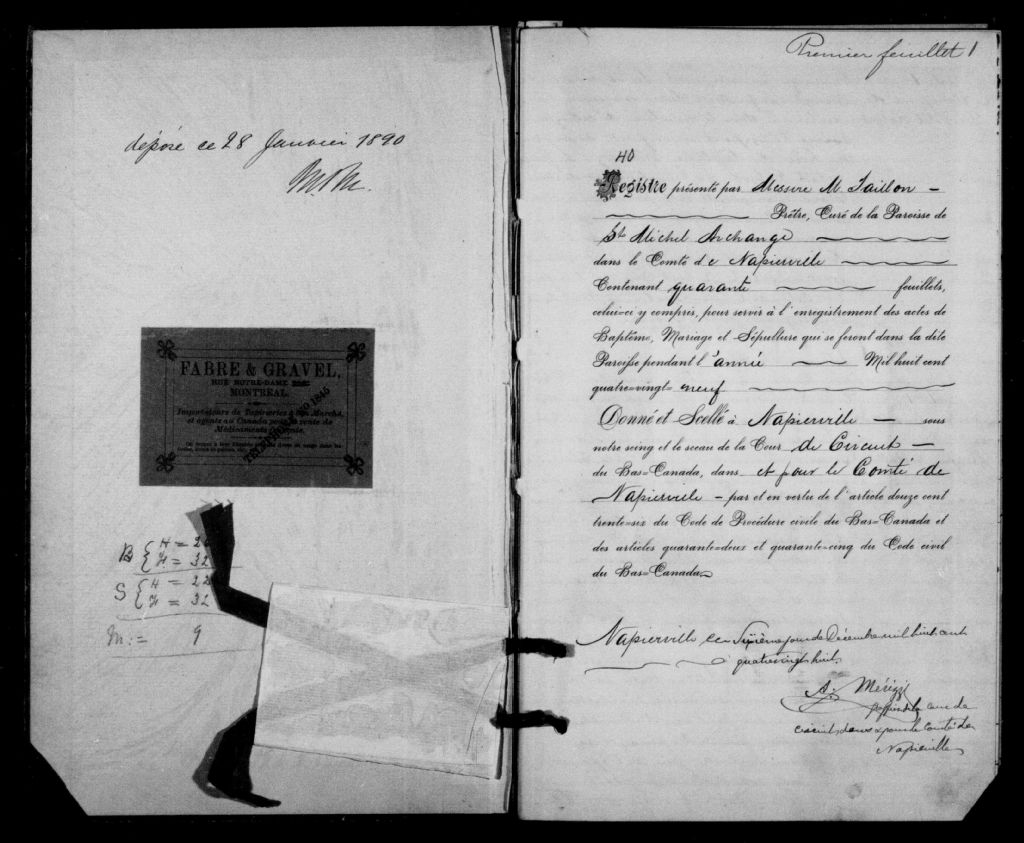 déposé ce 28 Janvier 1890
FABRE & GRAVEL,
RUE NOTRE-DAME
MONTREAL.
Importateurs de Tapisseries à Bon Marché,
et agents au Canada pour la vente de
Médicaments
TELEPHONE NO 1845
B { H = 2
F = 32
S { H = 22
F = 32
M. = 9
Premier feuillet 1
40
Registre présenté par Messire M. Taillon
Prêtre, Curé de la Paroisse de
St Michel Archange
dans le Comté de Napierville
Contenant quarante feuillets,
celui-ci y compris, pour servir à l'enregistrement des actes de
Baptême, Mariage et Sépulture qui se feront dans la dite
Paroisse pendant l'année Mil huit cent
quatre=vingt= neuf
Donné et Scellé à Napierville sous
notre seing et le sceau de la Cour de Circuit
du Bas=Canada, dans et pour le Comté de
Napierville - par et en vertu de l'article douze cent
trente=six du Code de Procédure civile du Bas=Canada et
des articles quarante=deux et quarante=cinq du Code civil
du Bas=Canada
Napierville ce Sixième jour de Décembre mil huit cent
quatrevingt huit.
A. Mérizzi
cour de
circuit dans & pour le comté de
Napierville